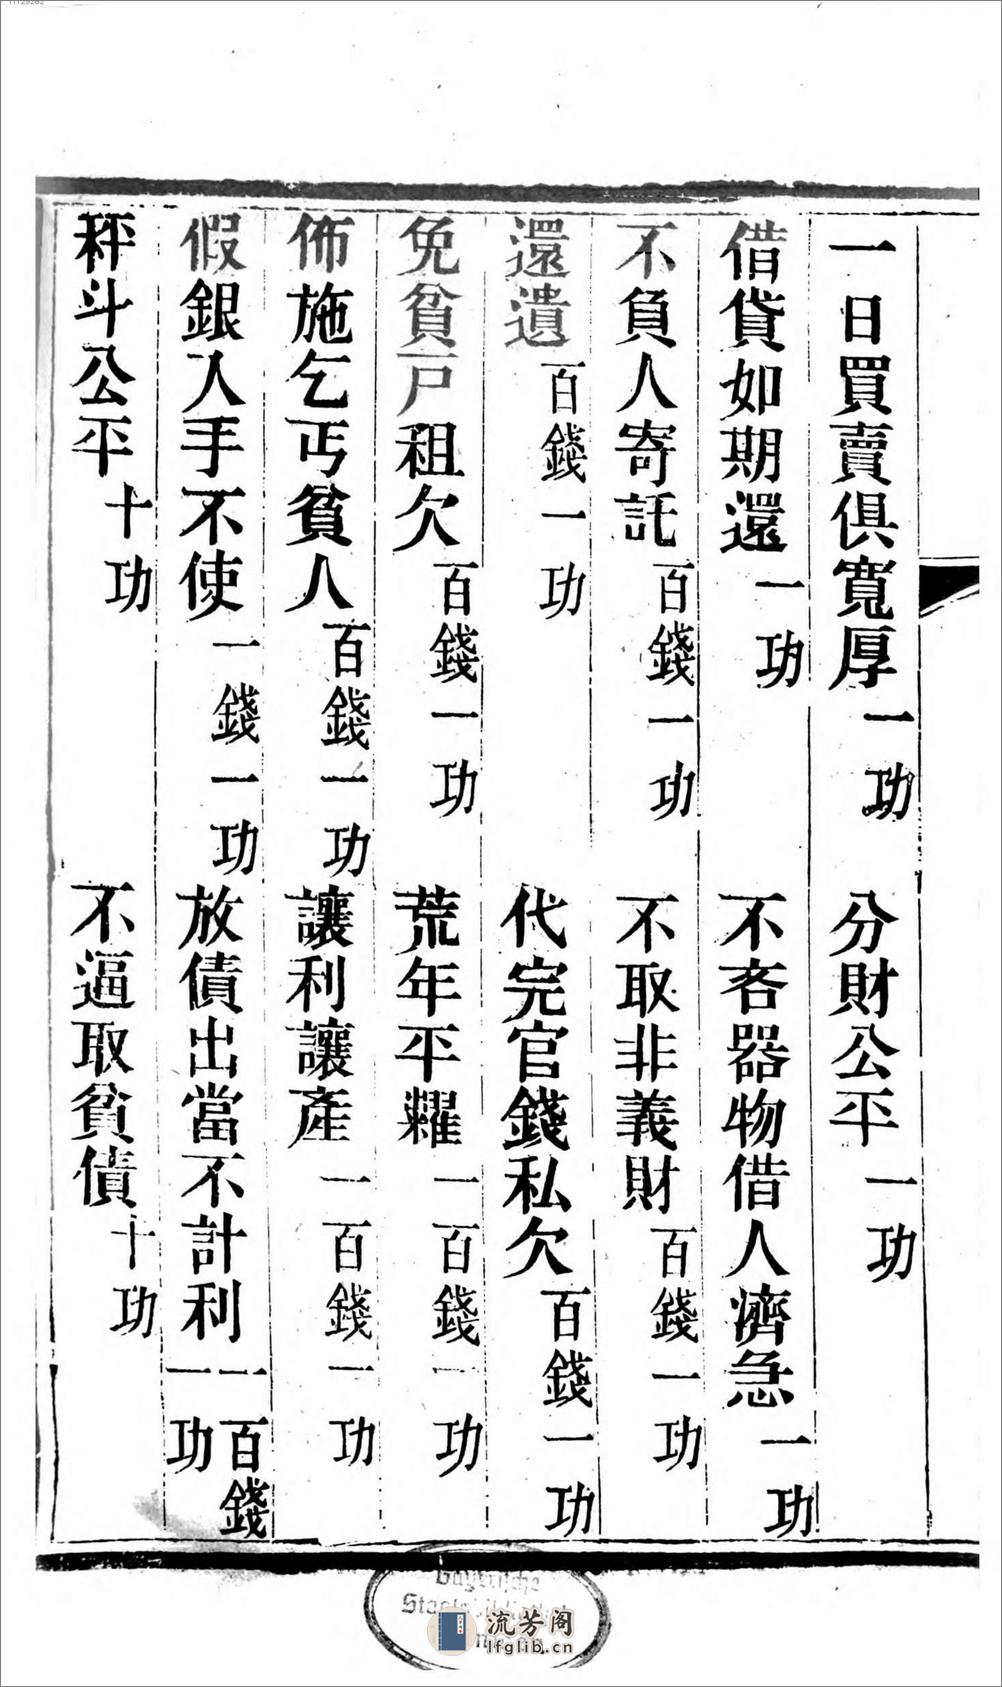 一日買賣俱寬厚 一功 分財公平 一功
借貸如期還 一功 不吝器物借人濟急 一功
不負人寄託 百錢一功 不取非義財 百錢一功
還遺 百錢一功 代完官錢私欠 百錢一功
免貧戸租欠 百錢一功 荒年平糶 一百錢一功
佈施乞丐貧人 百錢一功 讓利讓產 一百錢一功
假銀入手不使 一錢一功 放債出當不計利 一百錢一功
秤斗公平 十功 不逼取貧債 十功
Bayerische
Staatsbibliothek
流芳阁
lfglib.cn